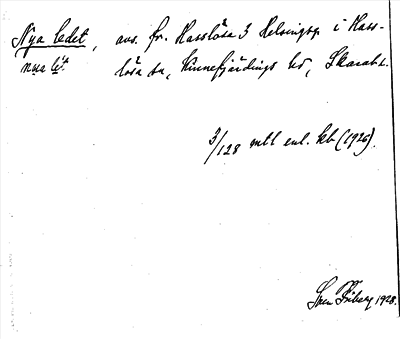 Nya ledet, avs. fr. Hasslösa 3 Helsingsg. i Hass-
lösa sn, Kinnefjärdings hd, Skarab. l.
3/128 mtl enl. kb (1926).
Sven Friberg 1928.